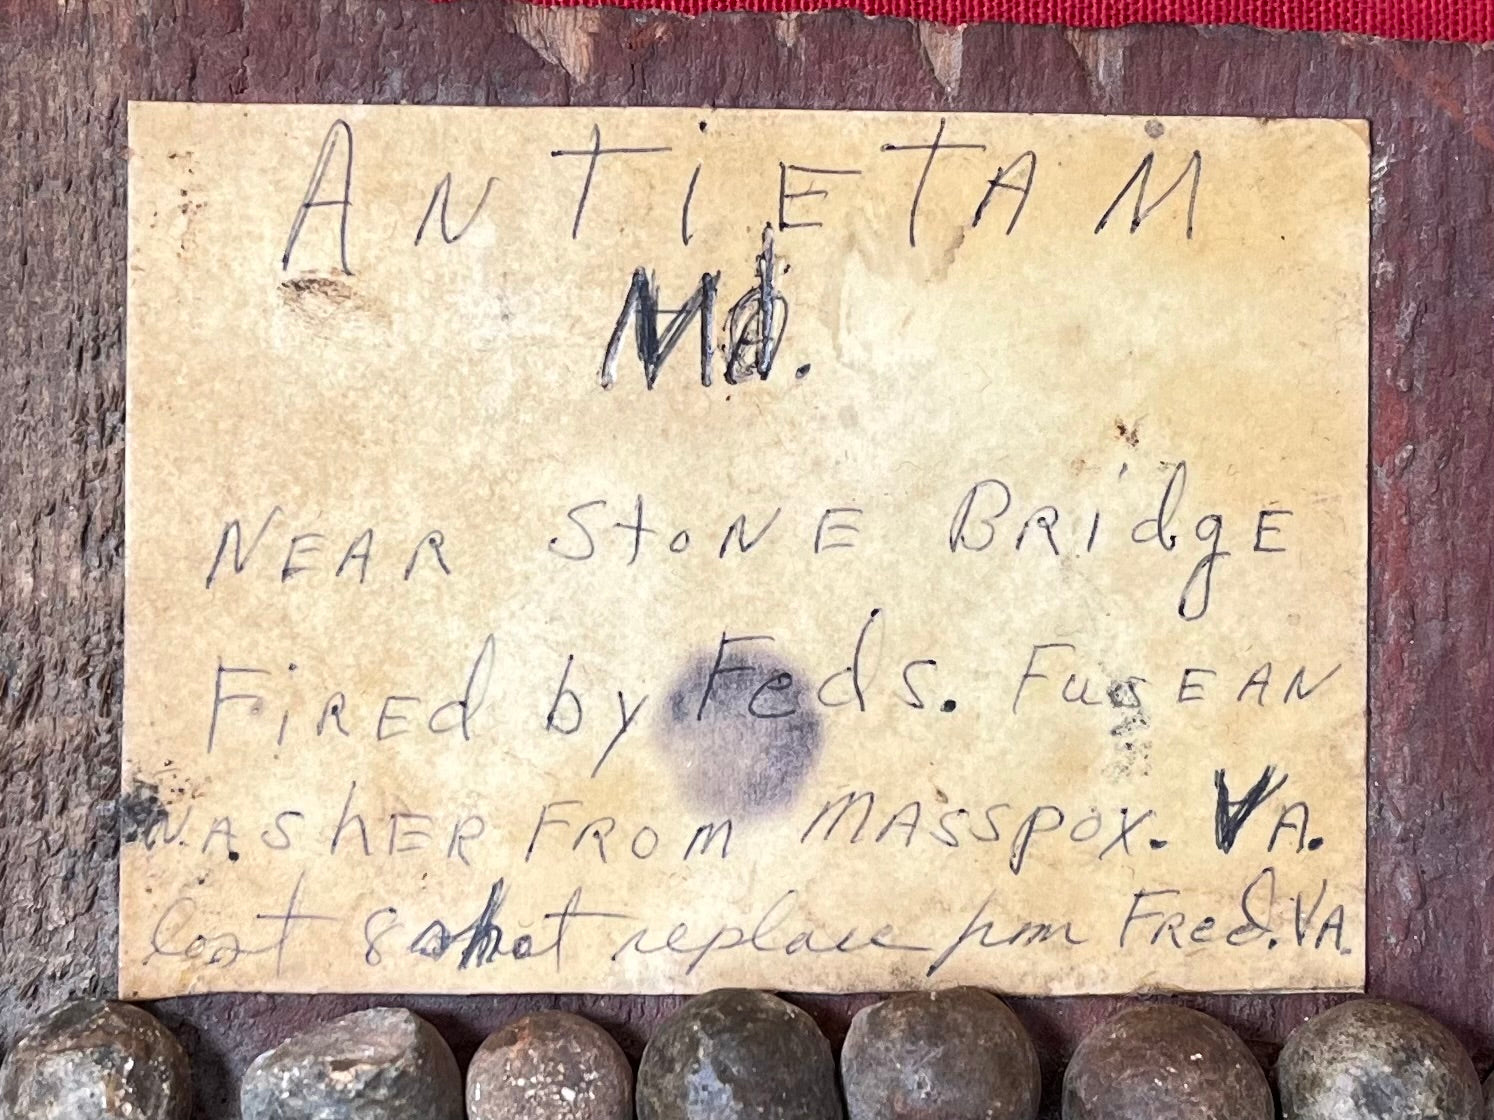 ANTiETAM
Md.
NEAR StoNE BRidgE
FiREd by Feds. FusEAN
WASHER FROM MASSPOX. VA.
lost 8 shot replace from FRed. VA.